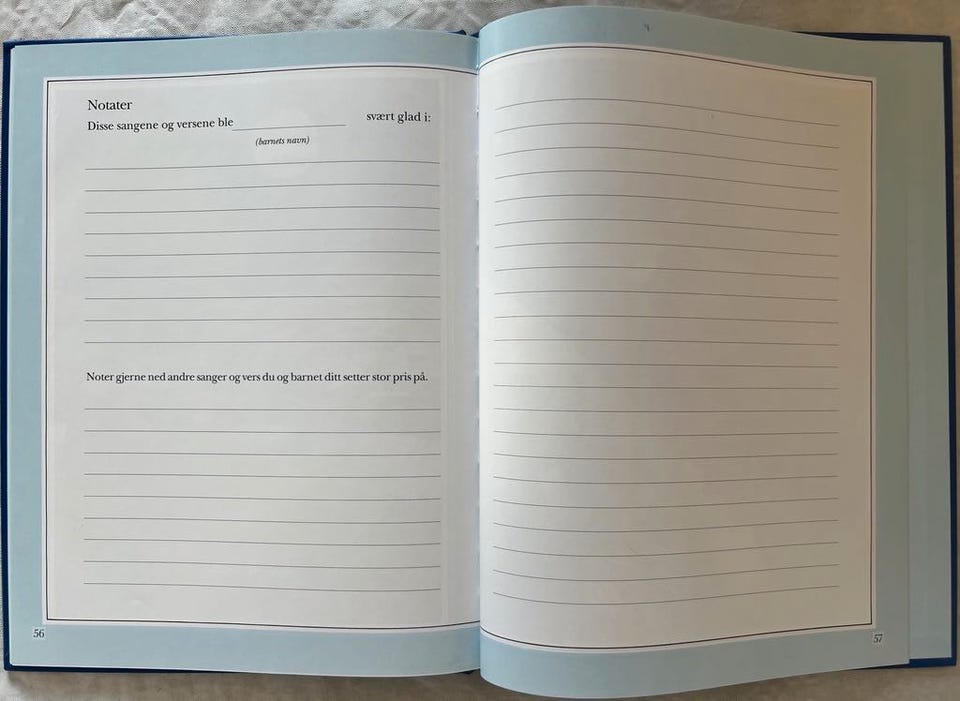 Notater
Disse sangene og versene ble svært glad i:
(barnets navn)
Noter gjerne ned andre sanger og vers du og barnet ditt setter stor pris på.
56
57